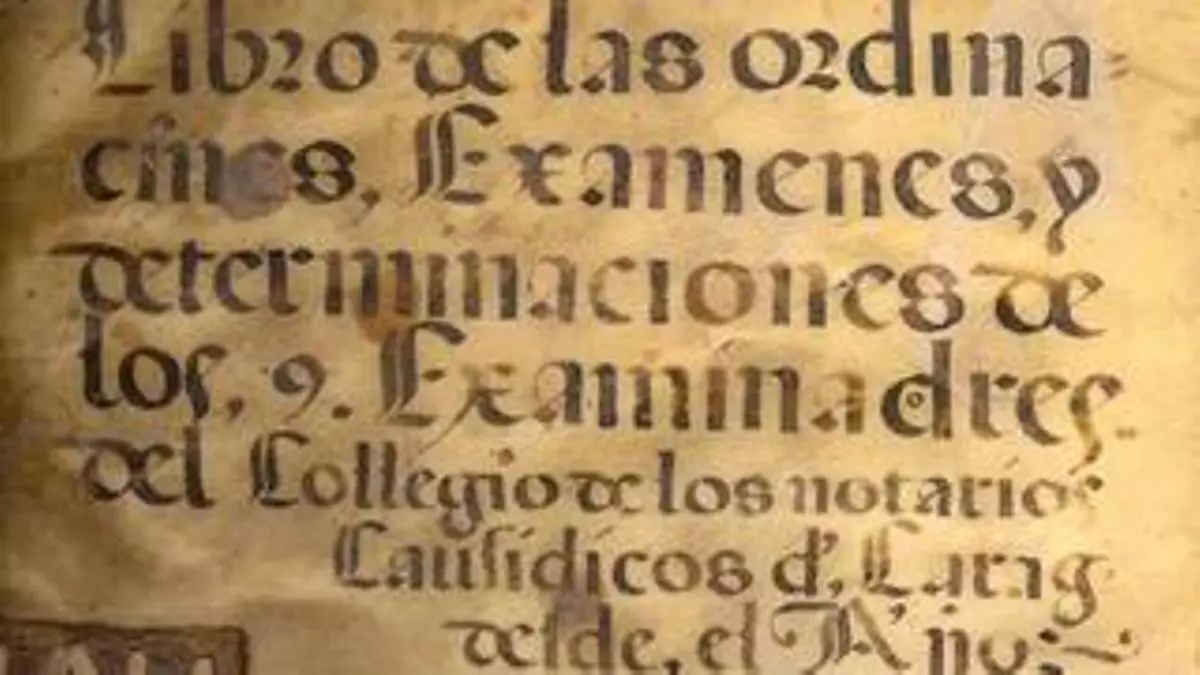 Libro de las ordina=
cines, Examenes, y
determinaciones de
los, 9. Examinadres.
del Collegio de los notarios
Causidicos d', Çarag
desde, el Año:~